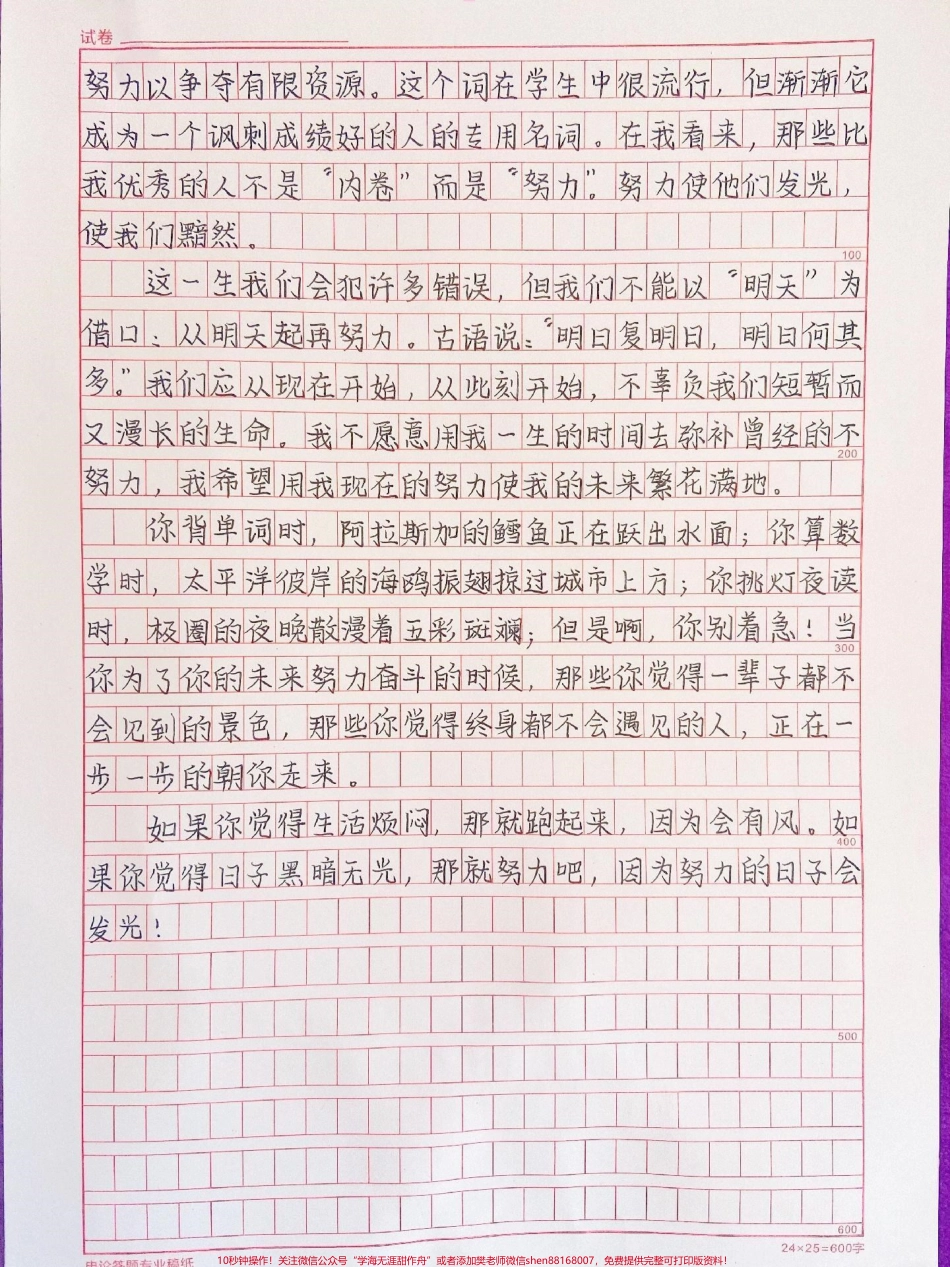 试卷
努力以争夺有限资源。这个词在学生中很流行，但渐渐它
成为一个讽刺成绩好的人的专用名词。在我看来，那些比
我优秀的人不是“内卷”而是“努力”。努力使他们发光，
使我们黯然。
100
这一生我们会犯许多错误，但我们不能以“明天”为
借口：从明天起再努力。古语说：“明日复明日，明日何其
多。”我们应从现在开始，从此刻开始，不辜负我们短暂而
又漫长的生命。我不愿意用我一生的时间去弥补曾经的不
200
努力，我希望用我现在的努力使我的未来繁花满地。
你背单词时，阿拉斯加的鳕鱼正在跃出水面；你算数
学时，太平洋彼岸的海鸥振翅掠过城市上方；你挑灯夜读
时，极圈的夜晚散漫着五彩斑斓；但是啊，你别着急！当
300
你为了你的未来努力奋斗的时候，那些你觉得一辈子都不
会见到的景色，那些你觉得终身都不会遇见的人，正在一
步一步的朝你走来。
如果你觉得生活烦闷，那就跑起来，因为会有风。如
400
果你觉得日子黑暗无光，那就努力吧，因为努力的日子会
发光！
500
600
24×25=600字
申论答题专业稿纸
10秒钟操作！关注微信公众号“学海无涯甜作舟”或者添加樊老师微信shen88168007，免费提供完整可打印版资料！